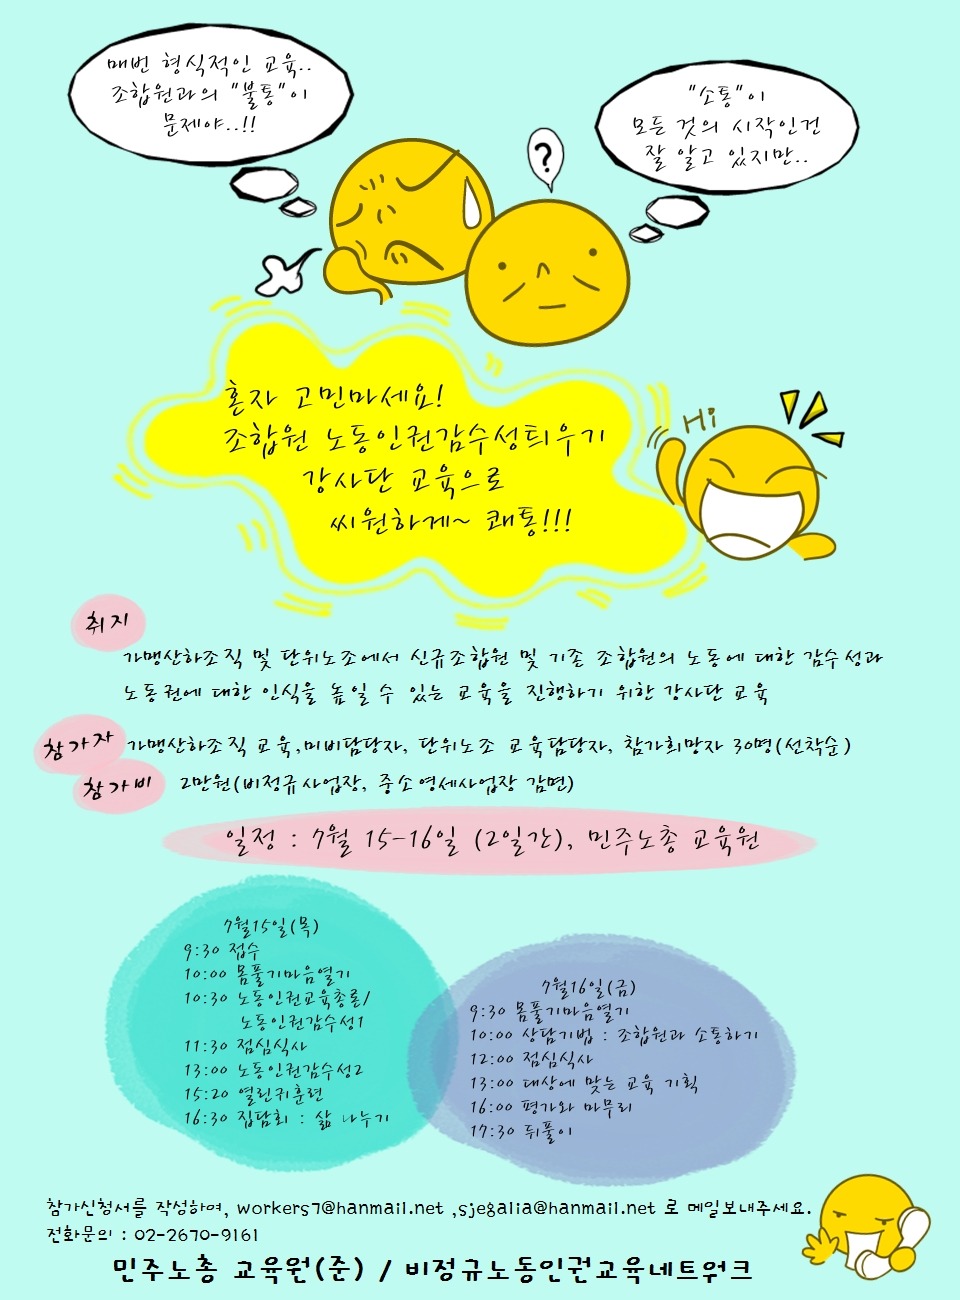 매번 형식적인 교육..
조합원과의 "불통"이
문제야..!!
"소통"이
모든 것의 시작인건
잘 알고 있지만..
?
혼자 고민마세요!
조합원 노동인권감수성틔우기
강사단 교육으로
씨원하게~ 쾌통!!!
Hi
취지
가맹산하조직 및 단위노조에서 신규조합원 및 기존 조합원의 노동에 대한 감수성과
노동권에 대한 인식을 높일 수 있는 교육을 진행하기 위한 강사단 교육
참가자 가맹산하조직 교육,미비담당자, 단위노조 교육담당자, 참가희망자 30명(선착순)
참가비 2만원(비정규사업장, 중소영세사업장 감면)
일정 : 7월 15-16일 (2일간), 민주노총 교육원
7월15일(목)
9:30 접수
10:00 몸풀기마음열기
10:30 노동인권교육총론/
노동인권감수성1
11:30 점심식사
13:00 노동인권감수성2
15:20 열린귀훈련
16:30 집담회 : 삶 나누기
7월16일(금)
9:30 몸풀기마음열기
10:00 상담기법 : 조합원과 소통하기
12:00 점심식사
13:00 대상에 맞는 교육 기획
16:00 평가와 마무리
17:30 뒤풀이
참가신청서를 작성하여, workers7@hanmail.net ,sjegalia@hanmail.net 로 메일보내주세요.
전화문의 : 02-2670-9161
민주노총 교육원(준) / 비정규노동인권교육네트워크